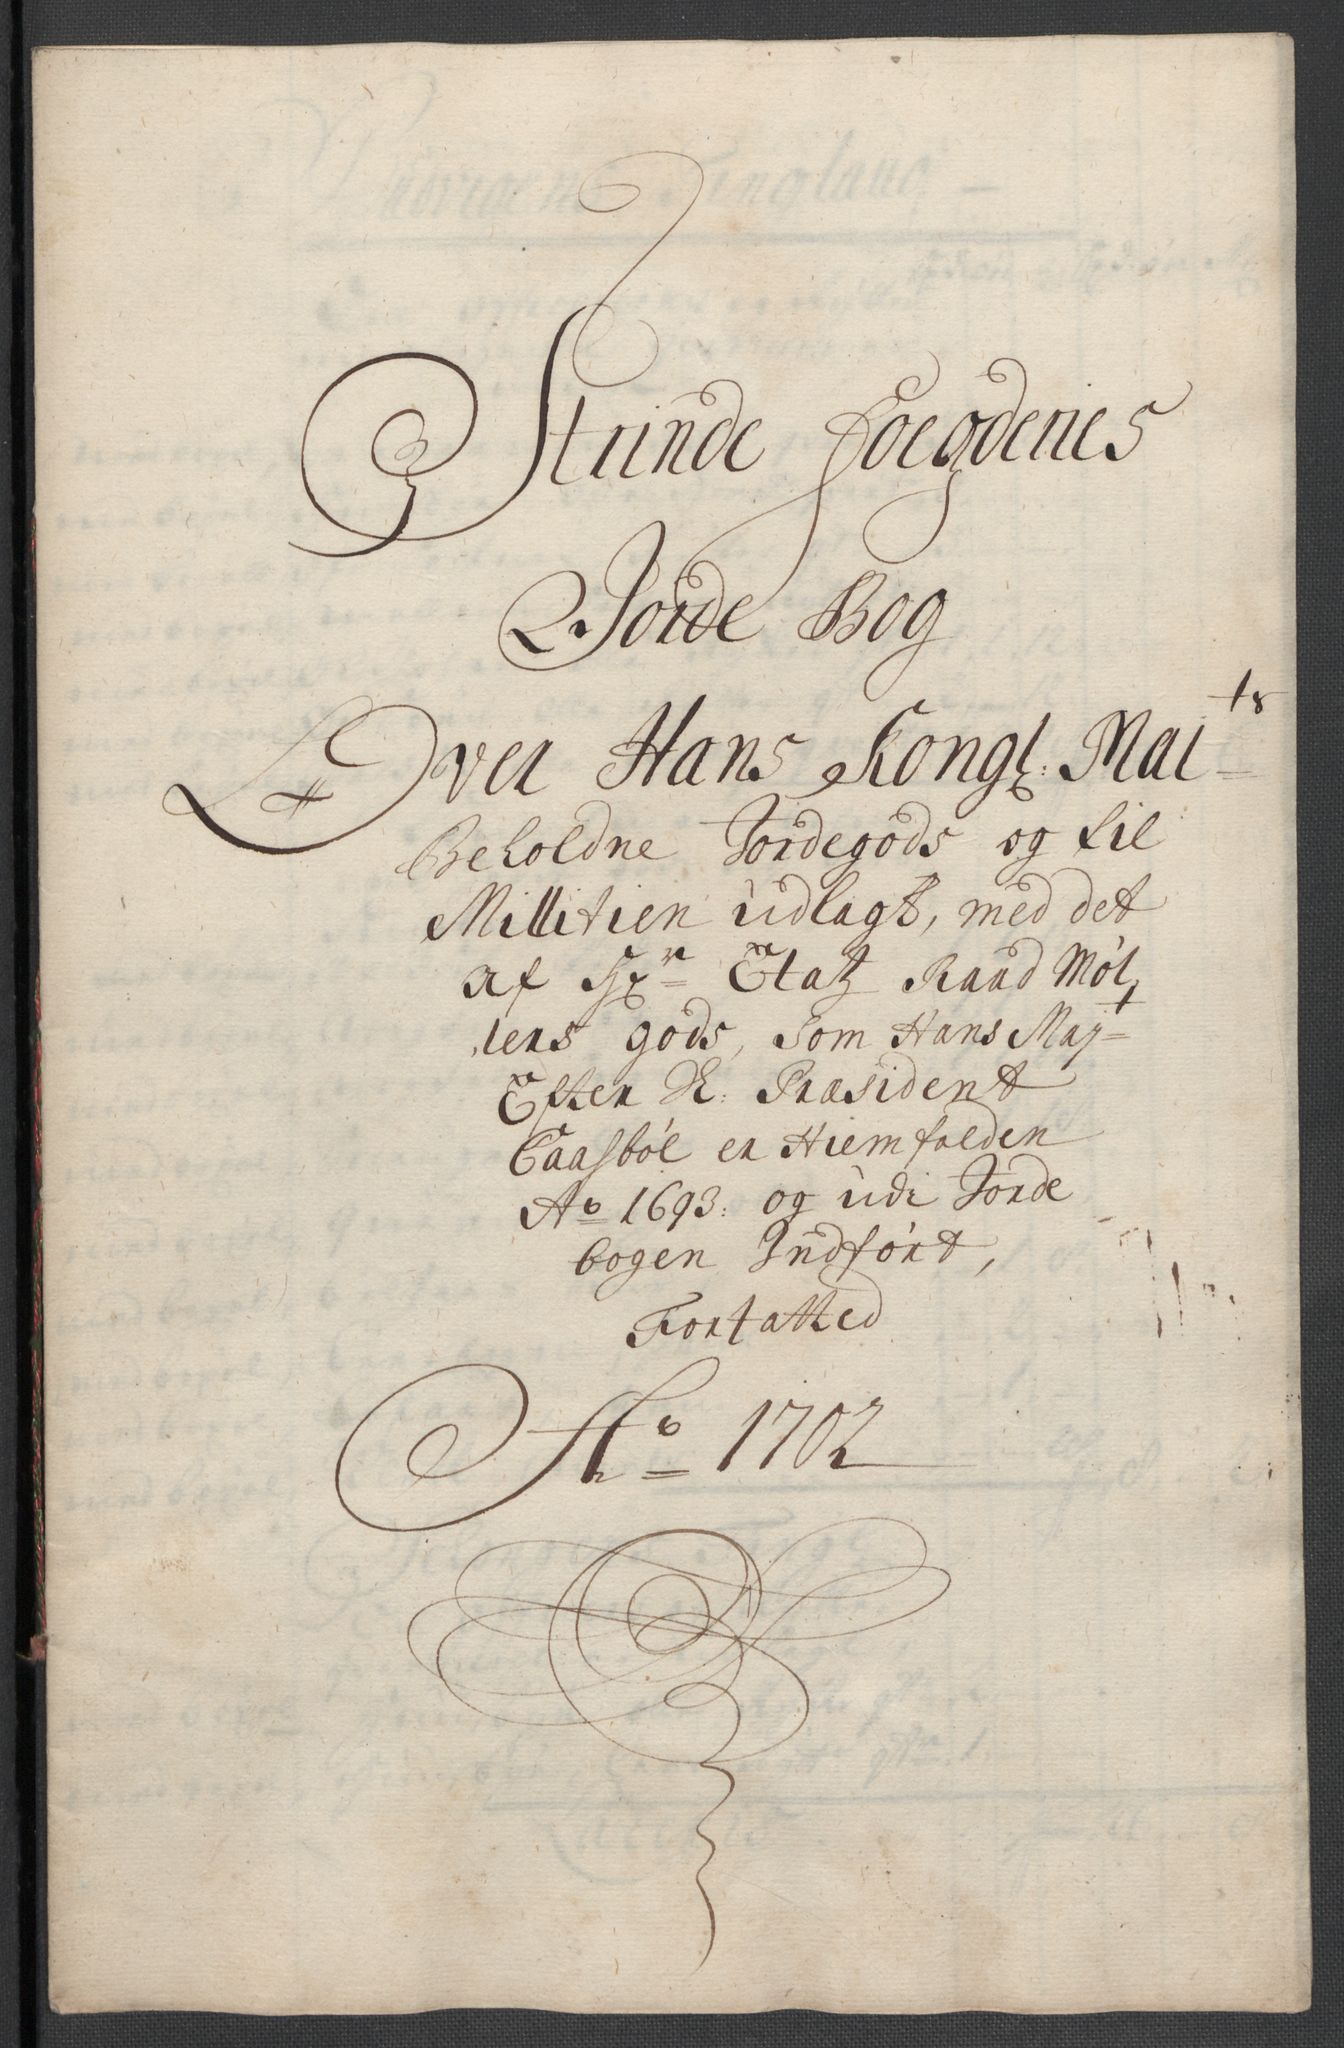 Strinde Foegderies
Jorde Bog
Over Hans Kongl: Mai ts
Beholdne Jordegods og til
Millitien udlagt, med det
af Hr Etatz Raad Møl,
lers gods, som Hans Majt
Efter Sl: Præsident
Caasbøl er Hiemfalden
Ao 1693: og udi Jorde
bogen Indført,
Forfatted
Ao 1702